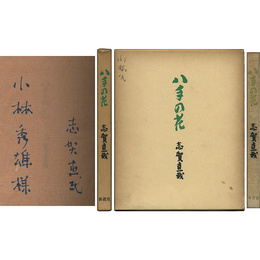 小林秀雄様
志賀直哉
八手の花
志賀直哉
新樹社
小林氏
八手の花
志賀直哉
八手の花
志賀直哉